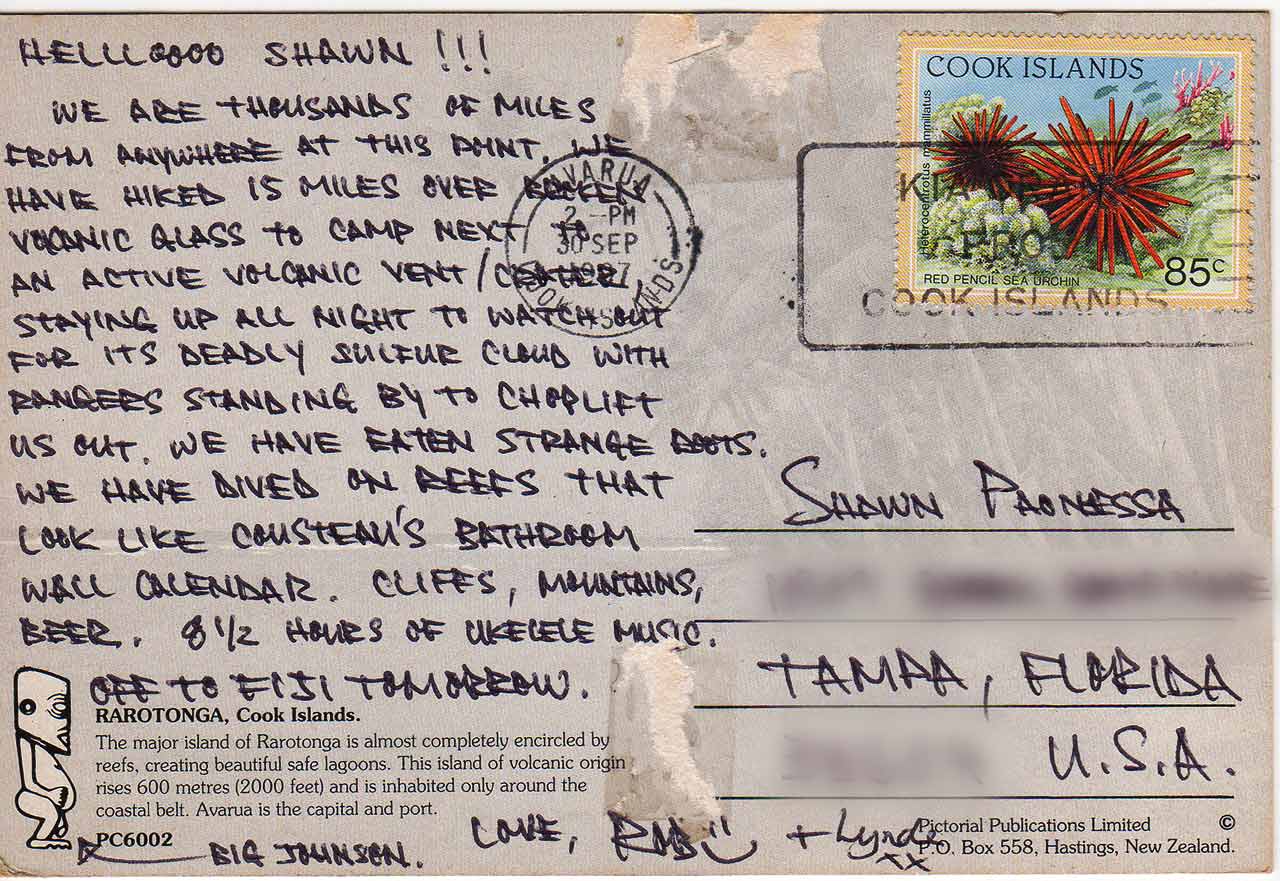 HELLLOOOO SHAWN !!!
WE ARE THOUSANDS OF MILES
FROM ANYWHERE AT THIS POINT. WE
HAVE HIKED 15 MILES OVER BROKEN
VOLCANIC GLASS TO CAMP NEXT TO
AN ACTIVE VOLCANIC VENT/CRATER
STAYING UP ALL NIGHT TO WATCH OUT
FOR ITS DEADLY SULFUR CLOUD WITH
RANGERS STANDING BY TO CHOPLIFT
US OUT. WE HAVE EATEN STRANGE ROOTS.
WE HAVE DIVED ON REEFS THAT
LOOK LIKE COUSTEAU'S BATHROOM
WALL CALENDAR. CLIFFS, MOUNTAINS,
BEER. 8 1/2 HOURS OF UKELELE MUSIC.
OFF TO FIJI TOMORROW.
LOVE, ROB + Lynda
xx
BIG JOHNSON.
RAROTONGA, Cook Islands.
The major island of Rarotonga is almost completely encircled by
reefs, creating beautiful safe lagoons. This island of volcanic origin
rises 600 metres (2000 feet) and is inhabited only around the
coastal belt. Avarua is the capital and port.
PC6002
AVARUA
2 -PM
30 SEP
COOK ISLANDS
COOK ISLANDS
Heterocentrotus mammillatus
RED PENCIL SEA URCHIN
85c
KIA
COOK ISLANDS
SHAWN PAONESSA
TAMPA, FLORIDA
U.S.A.
Pictorial Publications Limited ©
P.O. Box 558, Hastings, New Zealand.